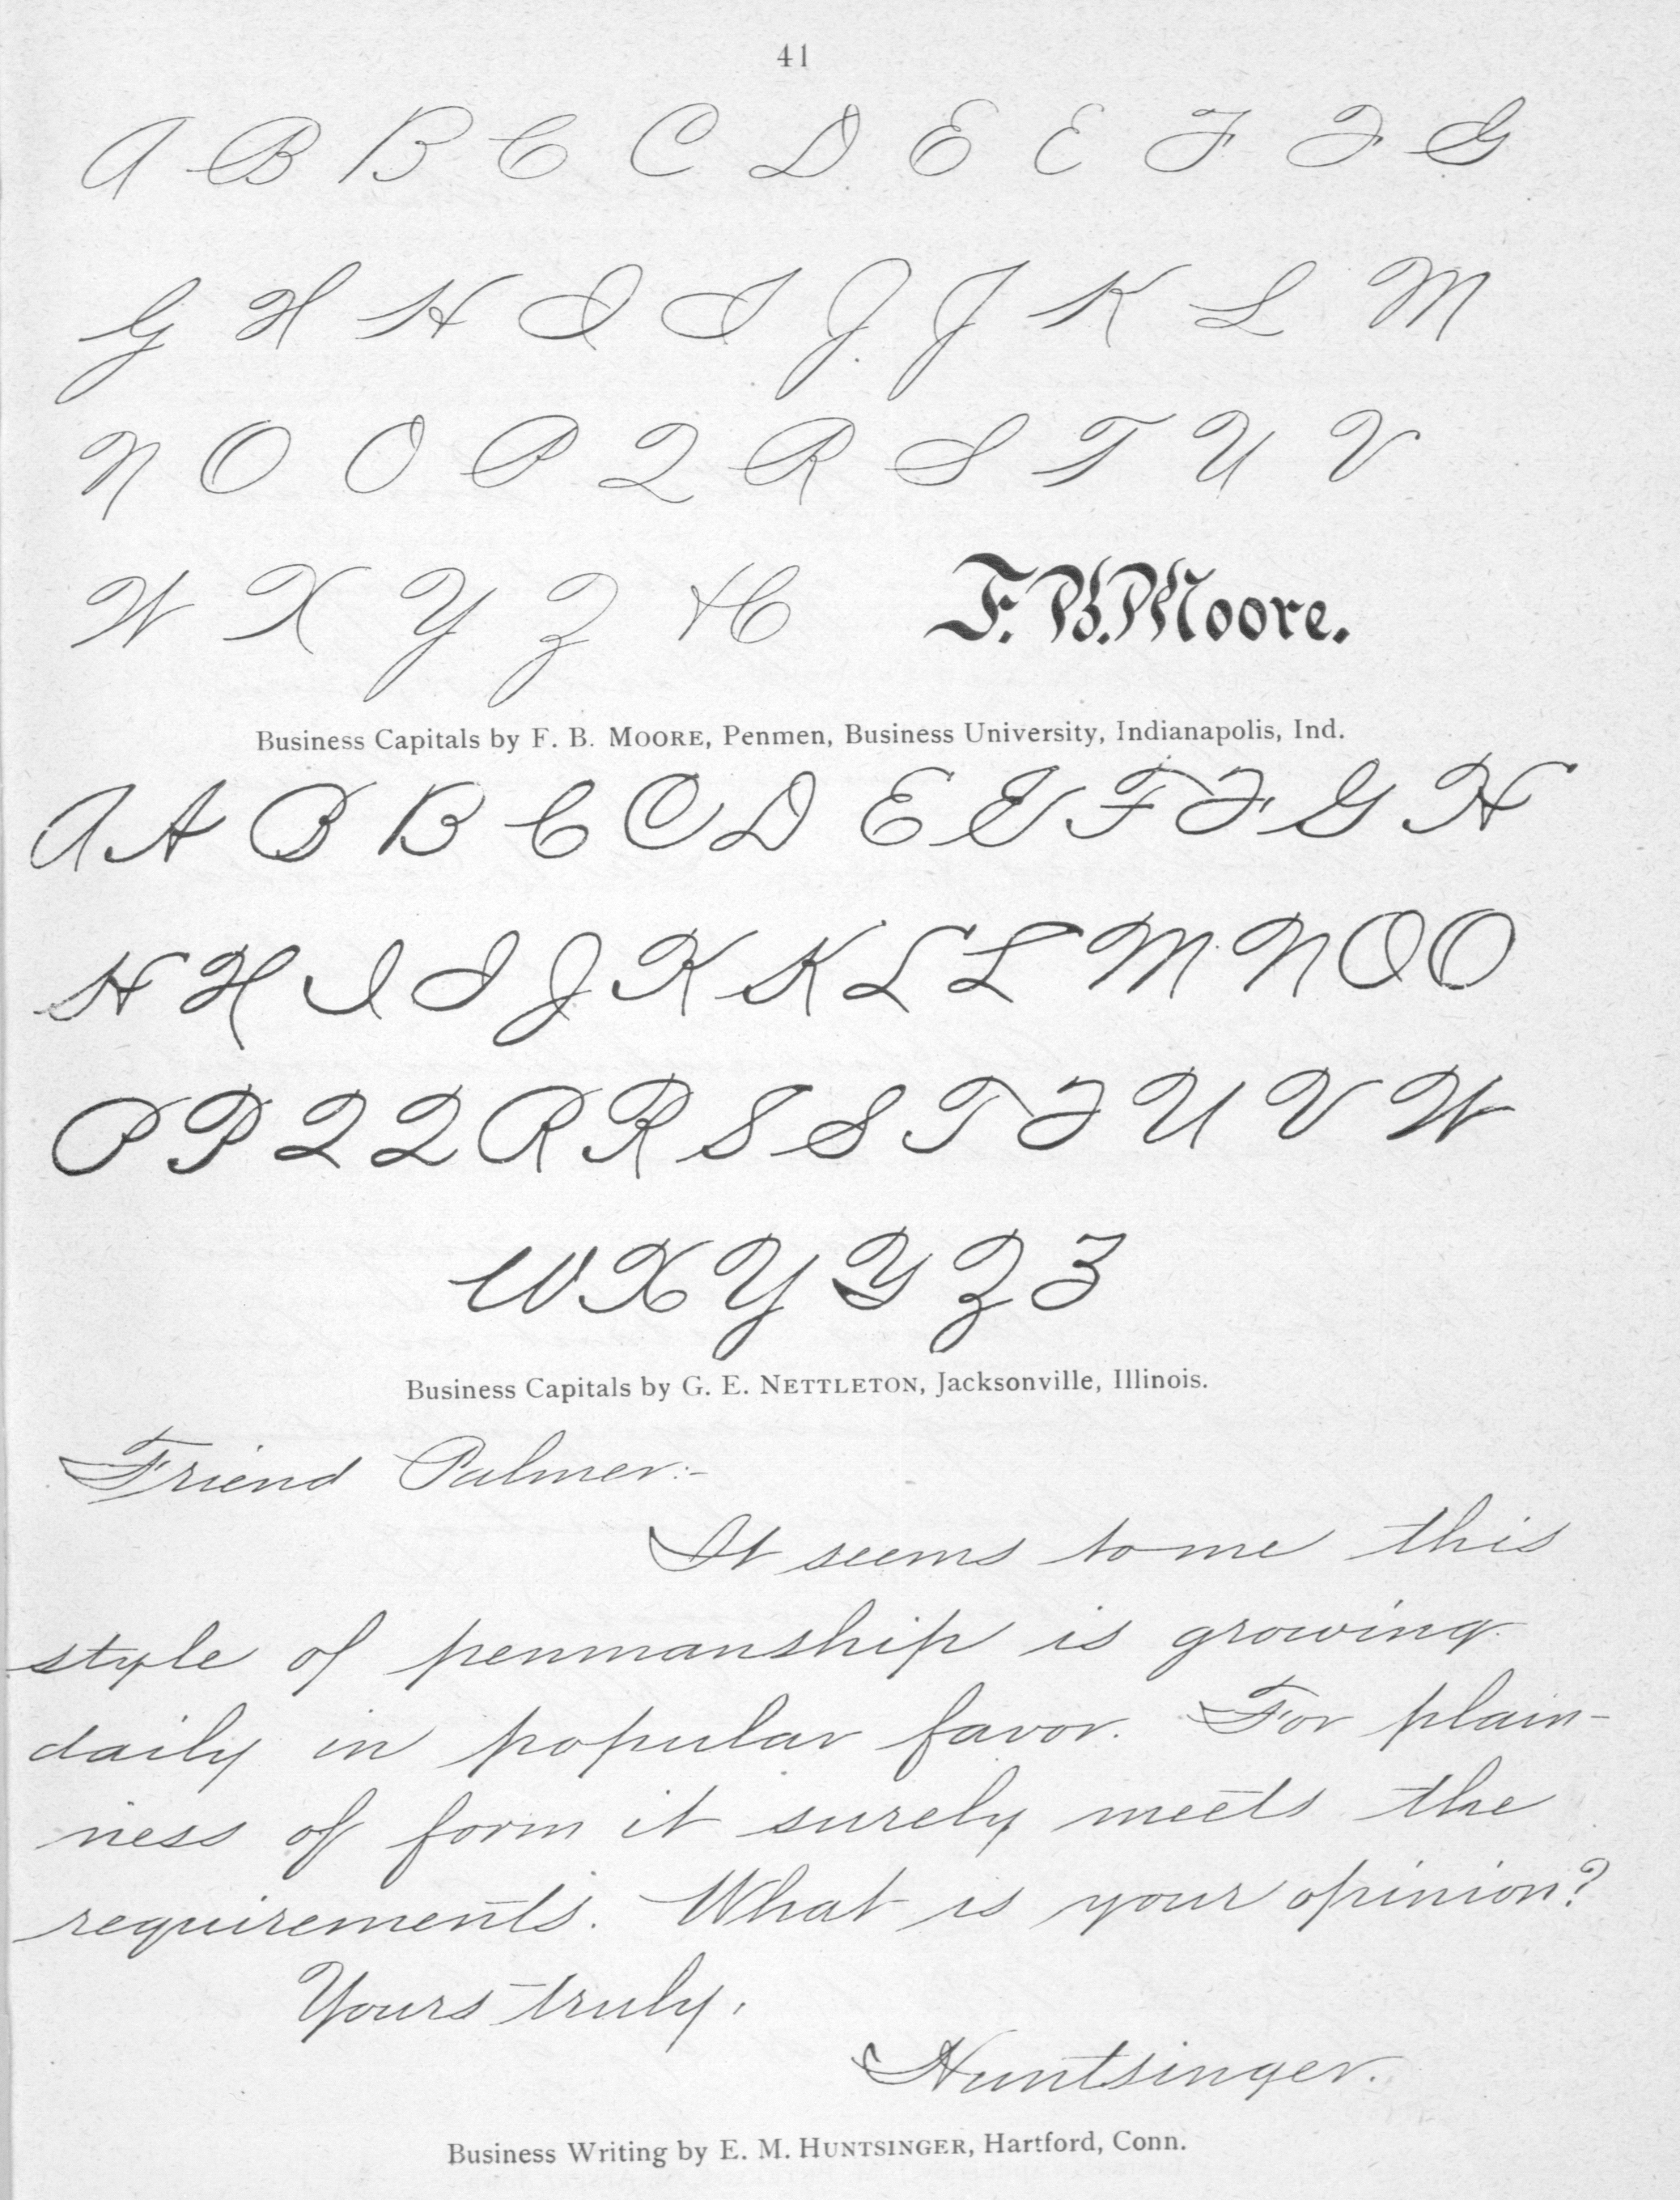 41
A B B C C D E E F F G
G H H I I J J K L M
N O O P Q R S T U V
W X Y Z H F. B. Moore.
Business Capitals by F. B. Moore, Penmen, Business University, Indianapolis, Ind.
A A B B C C D E E F F G H
H H I I J K K L L M N O O
P P Q Q R R S S T T U V W
W X Y Y Z Z
Business Capitals by G. E. Nettleton, Jacksonville, Illinois.
Friend Palmer:-
It seems to me this
style of penmanship is growing
daily in popular favor. For plain-
ness of form it surely meets the
requirements. What is your opinion?
Yours truly,
Huntsinger.
Business Writing by E. M. Huntsinger, Hartford, Conn.